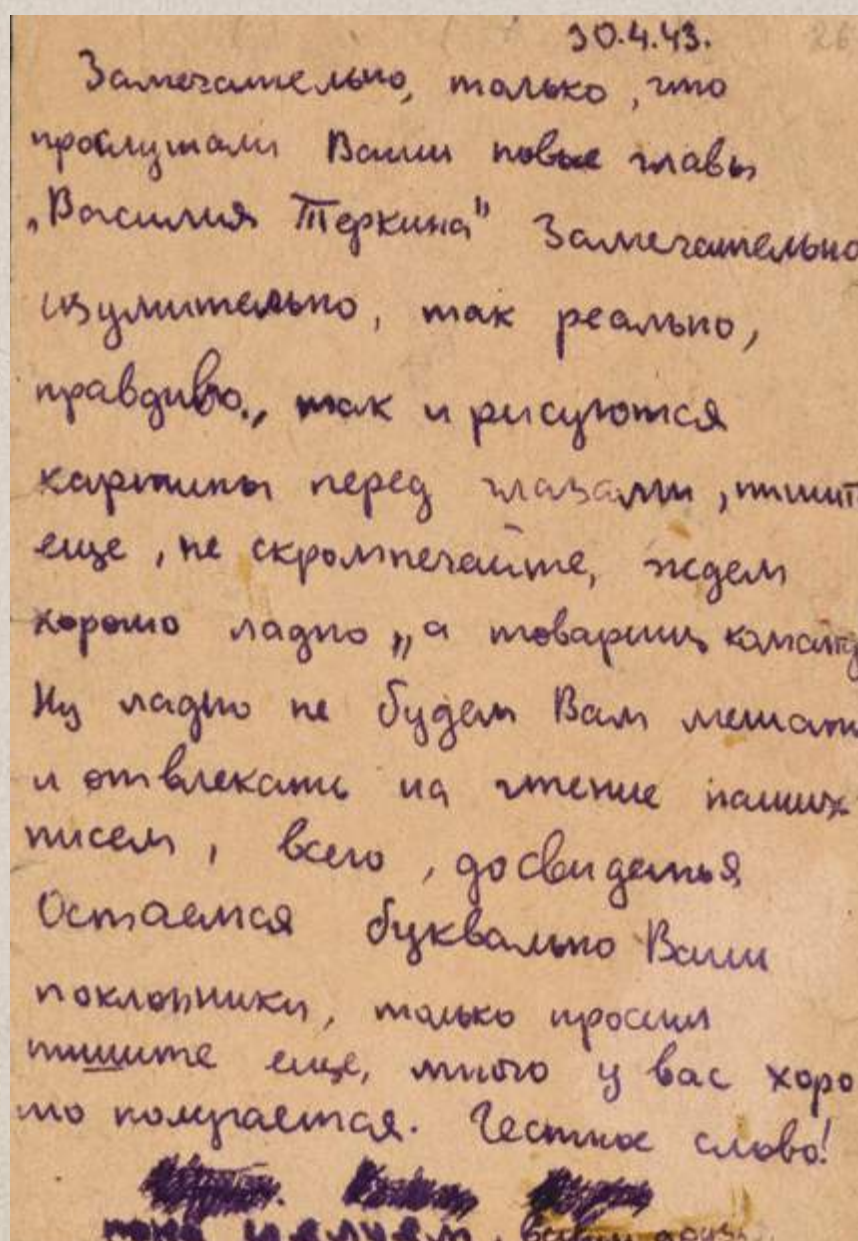 30.4.43. 26
Замечательно, только, что
прослушали Ваши новые главы
„Василия Теркина" Замечательно
изумительно, так реально,
правдиво., так и рисуются
картины перед глазами, пишит
еще, не скромпечайте, ждем
хорошо ладно „а товарищ команд
Ну ладно не будем Вам мешать
и отвлекать на чтение наших
писем, всего, досвиданья
Остаемся буквально Ваши
поклонники, только просим
пишите еще, много у вас хоро
шо получается. Честное слово!
пока целуем,